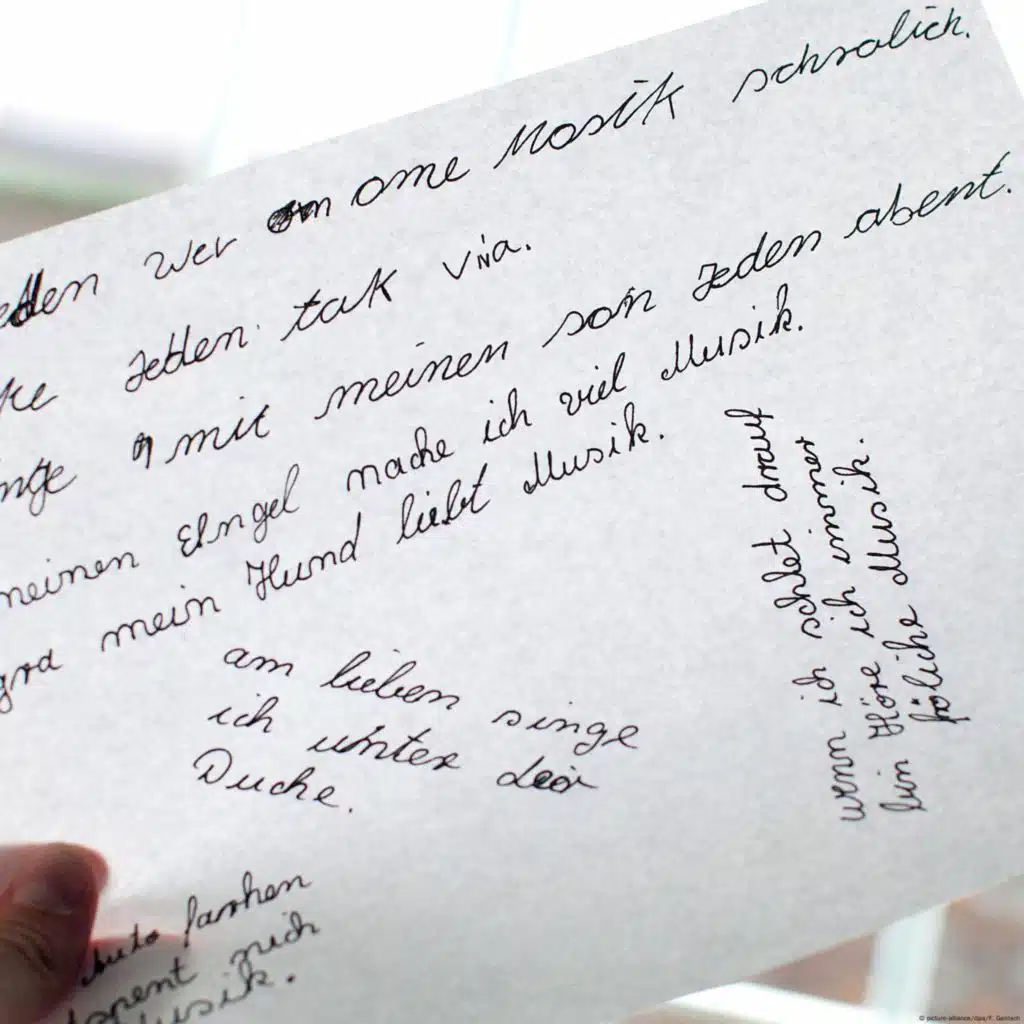 wer ome Mosik schralich.
Jeden tak via.
mit meinen son Jeden abent.
meinen Elngel mache ich viel Musik.
mein Hund liebt Musik.
am lieben singe
ich unter der
Duche.
wenn ich schlet drauf
bin Höre ich immer
föliche Musik.
farhen
mich
Musik.
© picture-alliance/dpa/F. Gentsch